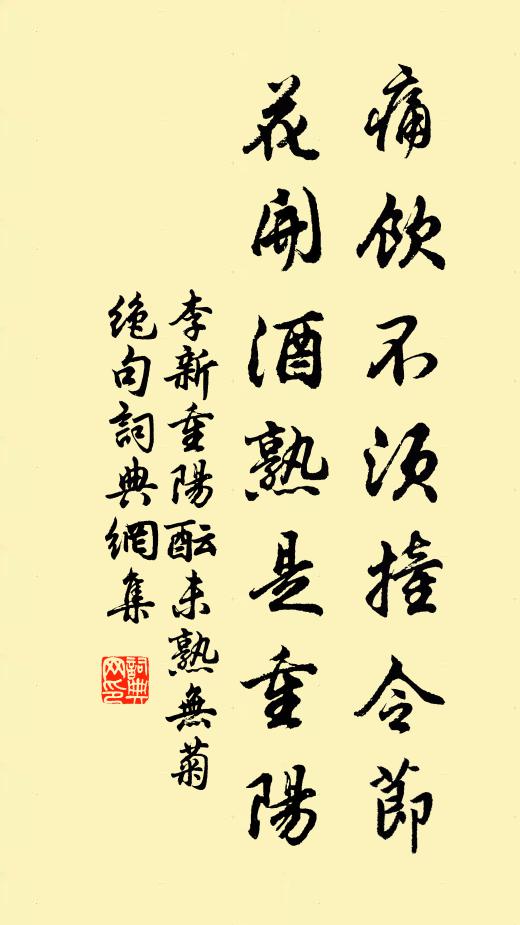 痛飲不須撞令節
花開酒熟是重陽
李新重陽酝未熟無菊
絕句詞典網集
詞典
网印